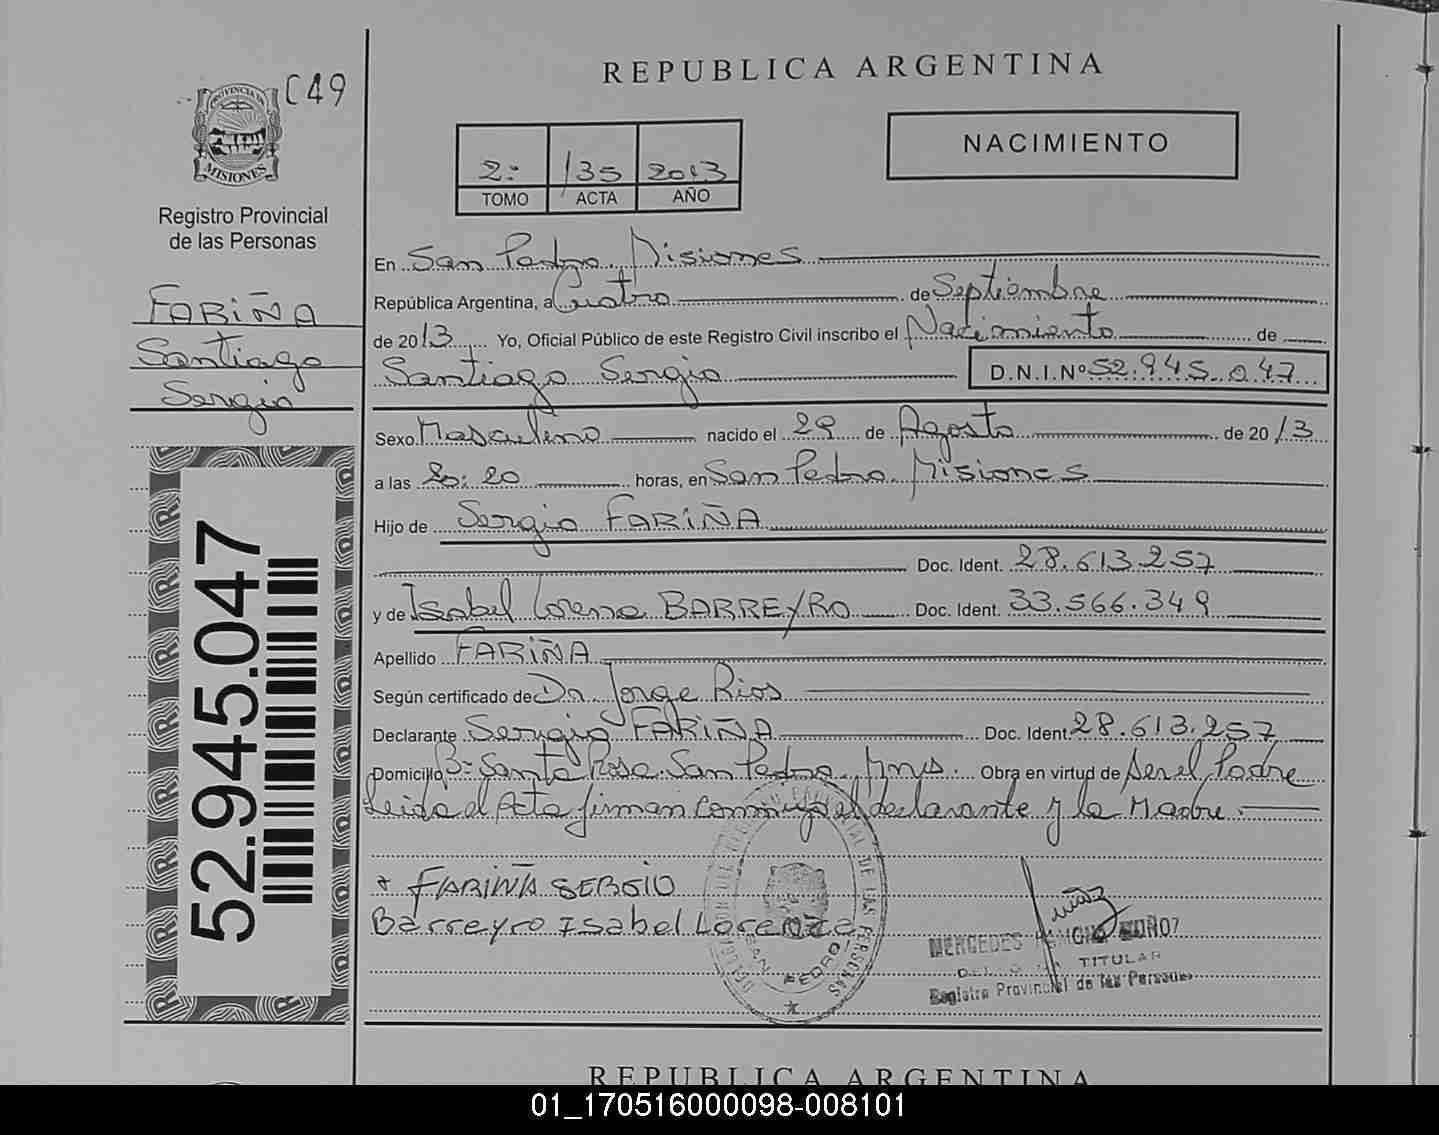 C49
PROVINCIA DE
MISIONES
Registro Provincial
de las Personas
FARIÑA
Santiago
Sergio
52.945.047
REPUBLICA ARGENTINA
NACIMIENTO
2º 135 2013
TOMO ACTA AÑO
En San Pedro, Misiones
República Argentina, a Cuatro de Septiembre
de 2013 Yo, Oficial Público de este Registro Civil inscribo el Nacimiento de
Santiago Sergio D.N.I.Nº 52.945.047
Sexo Masculino nacido el 29 de Agosto de 2013
a las 20:20 horas, en San Pedro, Misiones
Hijo de Sergio FARIÑA
Doc. Ident. 28.613.257
y de Isabel Lorena BARREYRO Doc. Ident. 33.566.349
Apellido FARIÑA
Según certificado de Dr. Jorge Rios
Declarante Sergio FARIÑA Doc. Ident. 28.613.257
Domicilio Bº Santa Rosa San Pedro, Mnes. Obra en virtud de Ser el Padre
Leida el Acta firman conmigo el declarante y la Madre.
+ FARIÑA SERGIO
Barreyro Isabel Lorenza
SAN PEDRO
MERCEDES RAMONA MUÑOZ
TITULAR
Registro Provincial de las Personas
REPUBLICA ARGENTINA
01_170516000098-008101